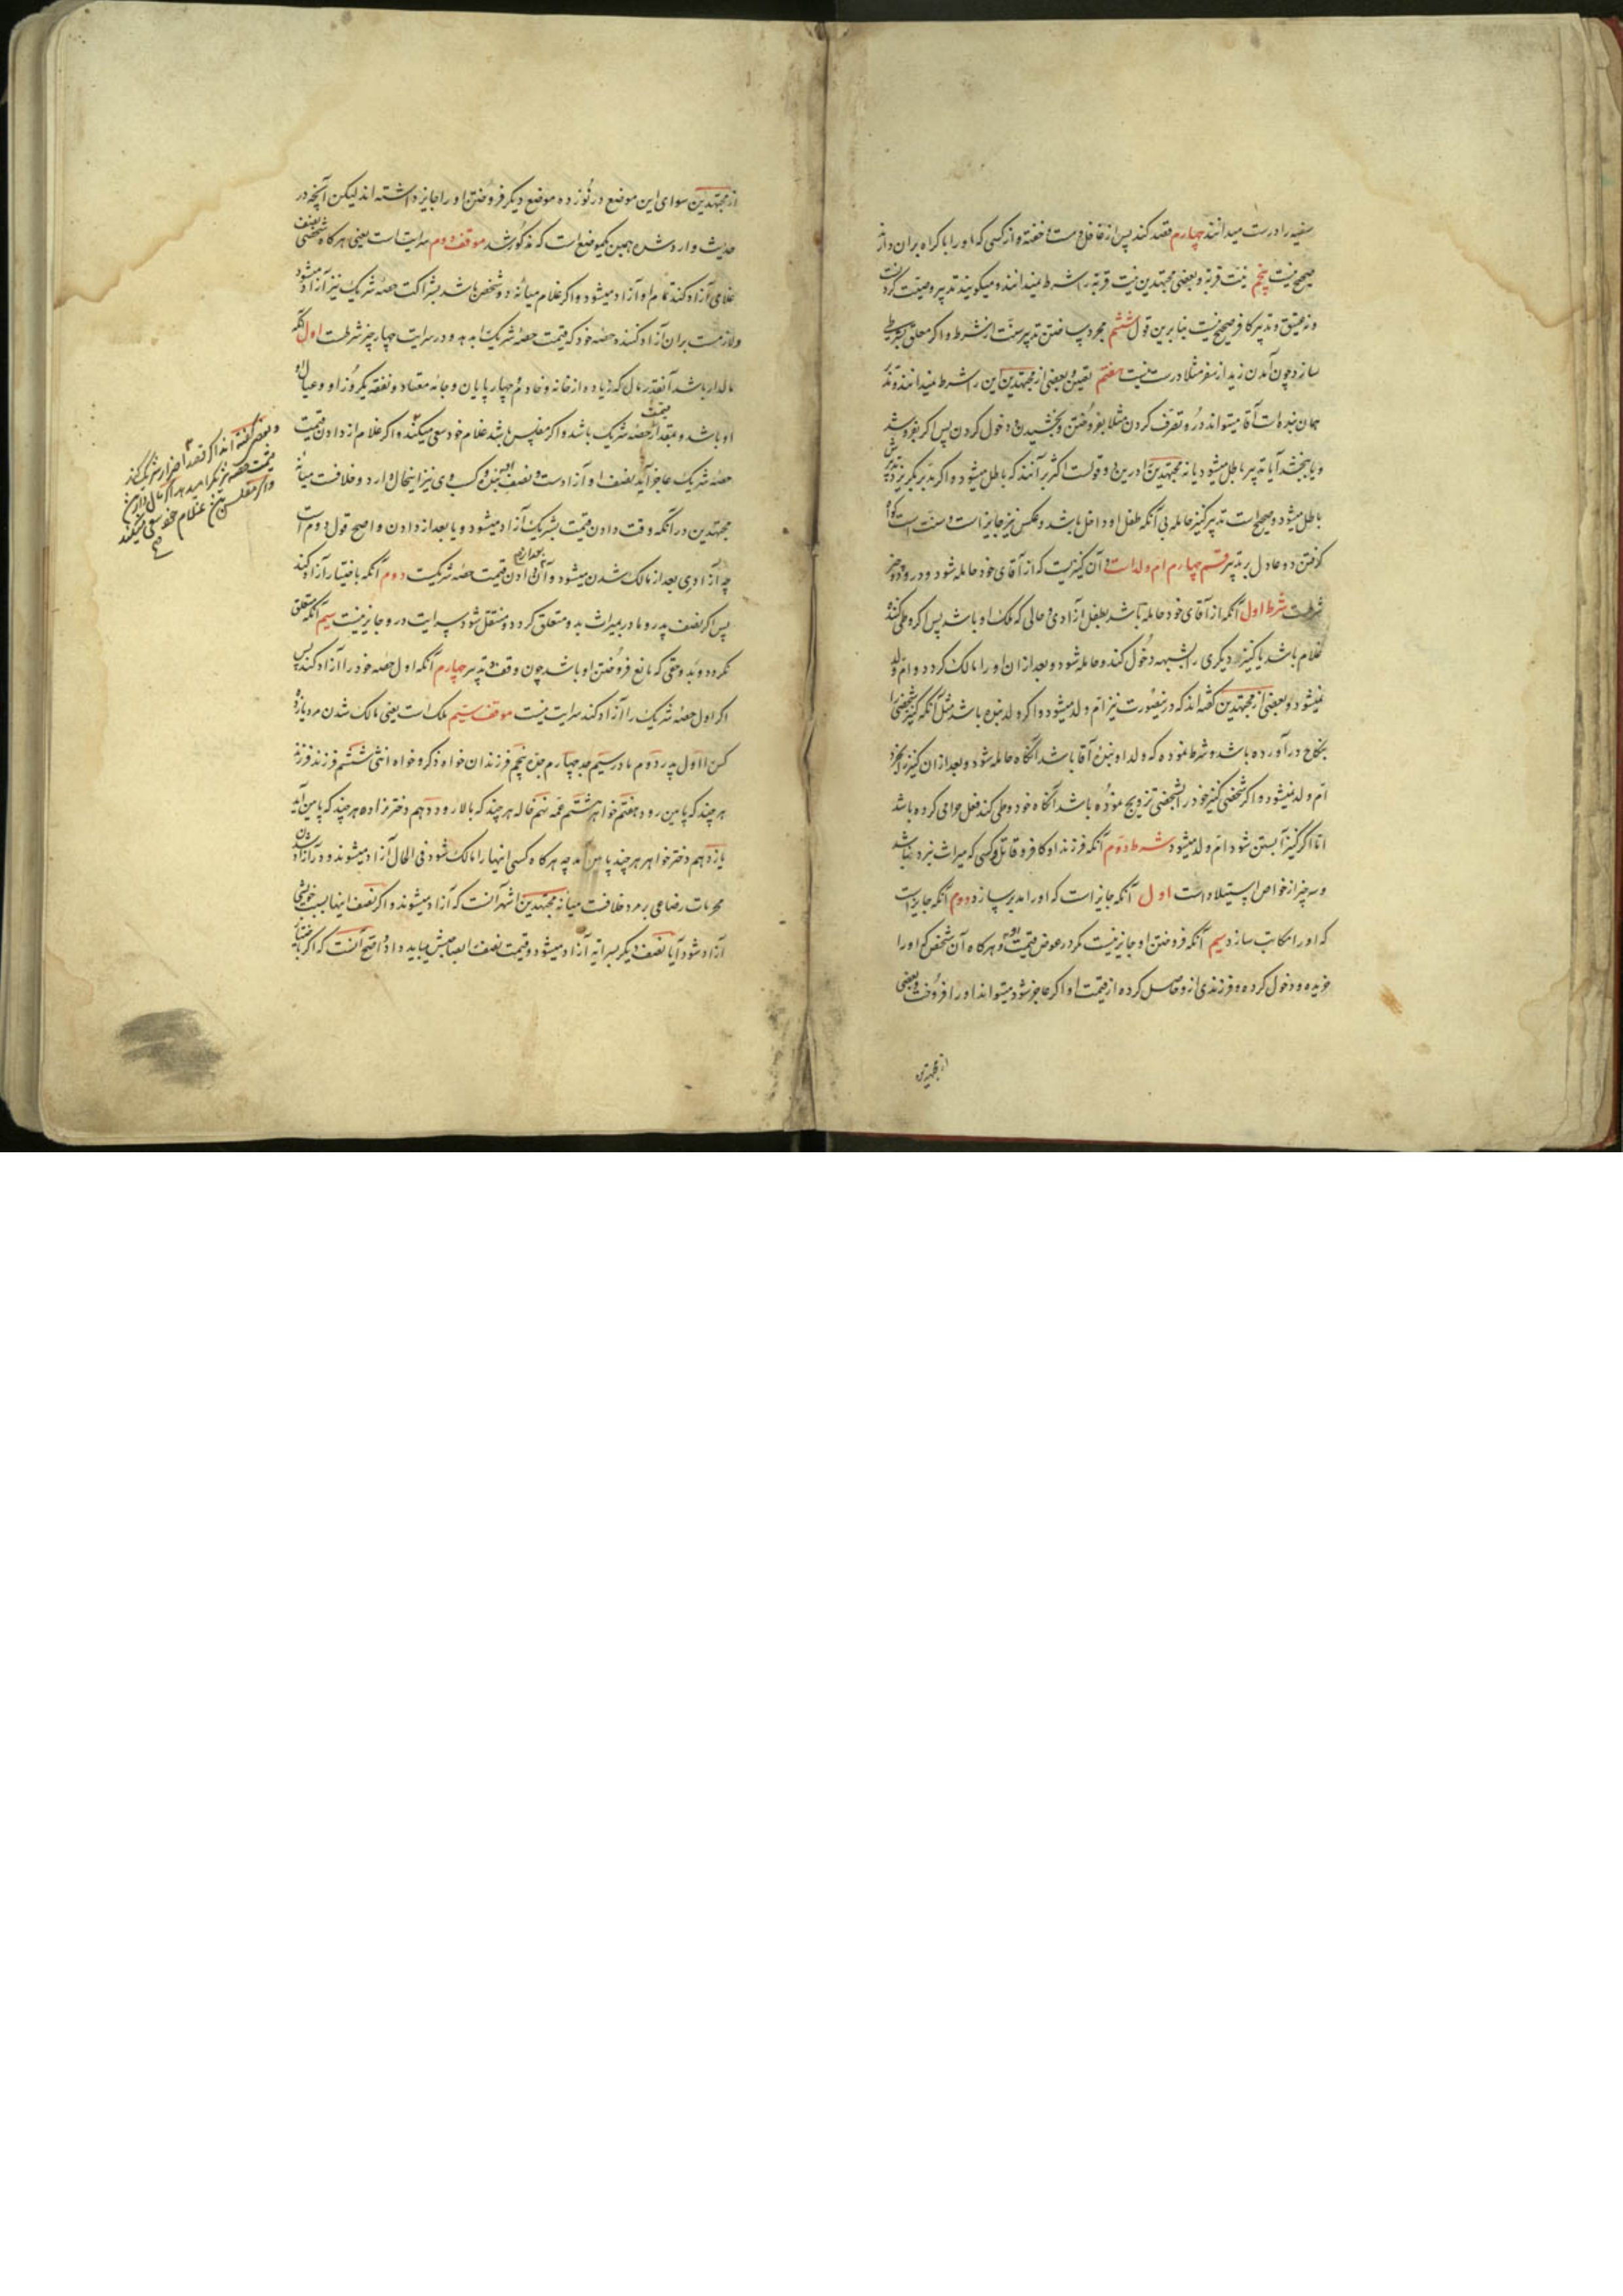 سفیه را درست میدانند چهارم قصد کند پس از غافل و مست و خفته و از کسی که او را باکراه بران دارند
صحیح نیست پنجم نیت قربة و بعضی مجتهدین نیت قربة را شرط نمیدانند و میگویند تدبیر وصیتست
نه عتیق و تدبیر کافر صحیح نیست بنابرین قول ششم مجرد ساختن تدبیرست از شرط و اگر معلق بشرطی
سازد چون آمدن زید از سفر مثلا درست نیست هفتم تعیین و بعضی از مجتهدین این را شرط نمیدانند و تدبیر
همان بنده است آقا میتواند درو تصرف کردن مثلا بفروختن و بخشیدن و دخول کردن پس اگر بفروشد
و یا ببخشد آیا تدبیر باطل میشود یا نه مجتهدین را درین دو قولست اکثر برآنند که باطل میشود و اگر مدبر بگریزد تدبیرش
باطل میشود و صحیح است تدبیر کنیز حامله بی آنکه طفل او داخل باشد و عکس نیز جایز است و سنت است گواه
گرفتن دو عادل بر تدبیر قسم چهارم ام ولد است و آن کنیزیست که از آقای خود حامله شود و درو دو چیز
شرطست شرط اول آنکه از آقای خود حامله باشد بطفل آزادی و حالی که ملک او باشد پس اگر وطی کننده
غلام باشد یا کنیز دیگری را بشبهه دخول کند و حامله شود و بعد ازان او را مالک گردد و ام ولد
نمیشود و بعضی از مجتهدین گفته اند که درینصورت نیز ام ولد میشود و اگر ولد بنده باشد مثل آنکه کنیز شخصی را
بنکاح درآورده باشد و شرط نموده که ولد او بنده آقا باشد آنگاه حامله شود و بعد ازان کنیز را بخرد
ام ولد نمیشود و اگر شخصی کنیز خود را بشخصی تزویج نموده باشد آنگاه خود وطی کند فعل حرامی کرده باشد
اما اگر کنیز آبستن شود ام ولد میشود شرط دوم آنکه فرزند او کافر و قاتل و کسی که میراث نبرد نباشد
و سه چیز از خواص استیلاد است اول آنکه جایز است که او را مدبر سازد دوم آنکه جایز است
که او را مکاتب سازد سیم آنکه فروختن او جایز نیست مگر در عوض قیمت او و هرگاه آن شخص که او را
خریده و دخول کرده و فرزندی ازو حاصل کرده از قیمت او اگر عاجز شود میتواند او را فروخت و بعضی
از مجتهدین
از مجتهدین سوای این موضع در نوزده موضع دیگر فروختن او را جایز داشته اند لیکن آنچه در
حدیث وارد شده همین یکموضع است که مذکور شد موقف دوم سرایت است یعنی هرگاه شخصی نصف
غلامی آزاد کند تمام او آزاد میشود و اگر غلام میانه دو شخص باشد بشراکت حصه شریک نیز آزاد میشود
و لازمست بران آزاد کننده حصه خود که قیمت حصه شریک را بدهد و در سرایت چهار چیز شرطست اول آنکه
مالدار باشد آنقدر مال که زیاده از خانه و خادم و چهارپایان و جامه معتاد و نفقه یکروز او و عیال او
او باشد و بقدر قیمت حصه شریک باشد و اگر مفلس باشد غلام خود سعی میکند و اگر غلام از دادن قیمت
حصه شریک عاجز آید نصف او آزادست و نصف بنده و کسب وی نیز اینحال دارد و خلافست میانه
مجتهدین در آنکه وقت دادن قیمت بشریک آزاد میشود و یا بعد از دادن و اصح قول دوم است
چه آزادی بعد از مالک شدن میشود و آن بعد از دادن قیمت حصه شریکست دوم آنکه باختیار آزاد کند
پس اگر نصف پدر و مادر بمیراث بدو متعلق گردد و منتقل شود سرایت درو جایز نیست سیم آنکه متعلق
نگردد بدو حقی که مانع فروختن او باشد چون وقف و تدبیر چهارم آنکه اول حصه خود را آزاد کند پس
اگر اول حصه شریک را آزاد کند سرایت نیست موقف سیم ملک است یعنی مالک شدن مرد یازده
کس را اول پدر دوم مادر سیم جد چهارم جده پنجم فرزندان خواه ذکر و خواه انثی ششم فرزند فرزند
هر چند که پائین رود هفتم خواهر هشتم عمه نهم خاله هر چند که بالا رود دهم دختر برادر هر چند که پائین آید
یازدهم دختر خواهر هر چند پائین آید چه هرگاه کسی اینها را مالک شود فی الحال آزاد میشوند و در آزاد شدن
محرمات رضاعی بر مرد خلافست میانه مجتهدین اشهر آنست که آزاد میشوند و اگر نصف اینها بسبب خویشی
آزاد شود آیا نصف دیگر بسرایة آزاد میشود و قیمت نصف را بصاحبش میباید داد و اصح آنست که اگر باختیار
و بعضی گفته اند اگر قصد اضرار شریک کند
قیمت حصه شریک را میدهد اگر مال دارد
و اگر مفلس غلام خود سعی میکند